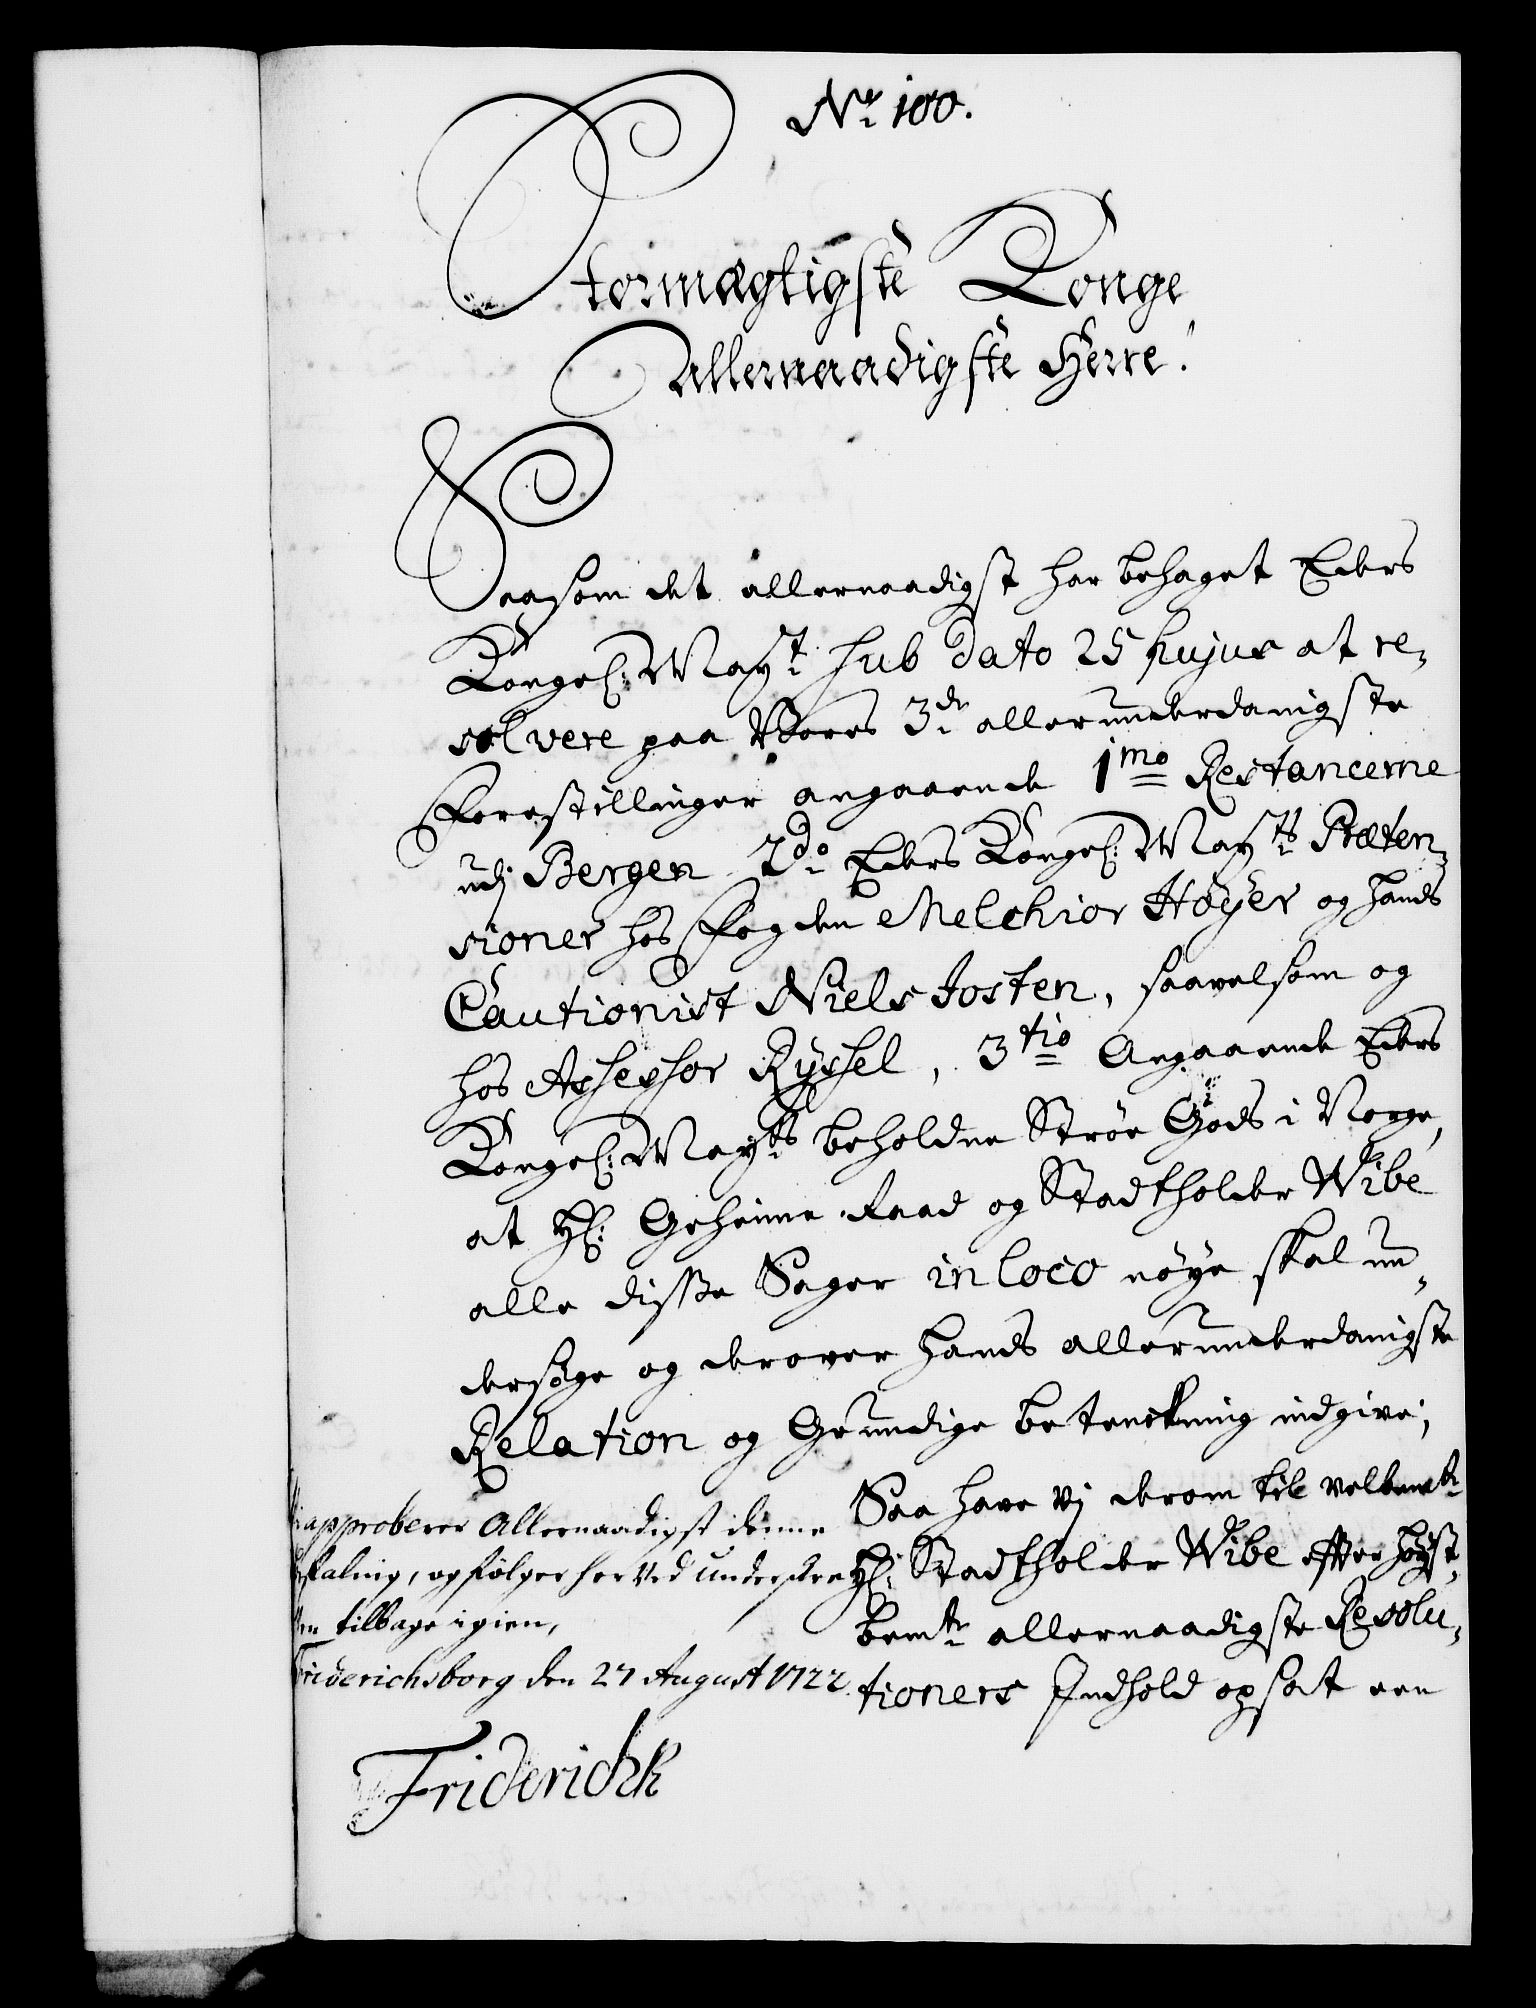 No. 100.
Stormægtigste Konge
Allernaadigste Herre!
Saasom det allernaadigst har behaget Eders
Kongel: Mayt. sub dato 25 hujus at re-
solvere paa Vores 3de allerunderdanigste
Forestillinger angaaende 1mo Restancerne
udj Bergen 2do Eders Kongel: Mayts Præten-
sioner hos Fogden Melchior Höyer og hands
Cautionist Niels Josten, saavelsom og
hos Assessor Ryssel, 3tio Angaaende Eders
Kongel: Mayts beholdne Strøe Gods i Norge,
at Hl: Geheime Raad og Stadtholder Wibe
alle disse Sager in loco nöye skal un-
dersöge og derover hands allerunderdanigste
Relation og Grundige betenkning indgive;
Saa have Vj derom til velbemte
Hl: Stadtholder Wibe effter höyst-
bemte allernaadigste Resolu-
tioners Indhold opsat een
approberer Allernaadigst denne
befaling, og følger herved underskre-
ven tilbage igien,
Friderichsborg den 27 August 1722.
Friderich R